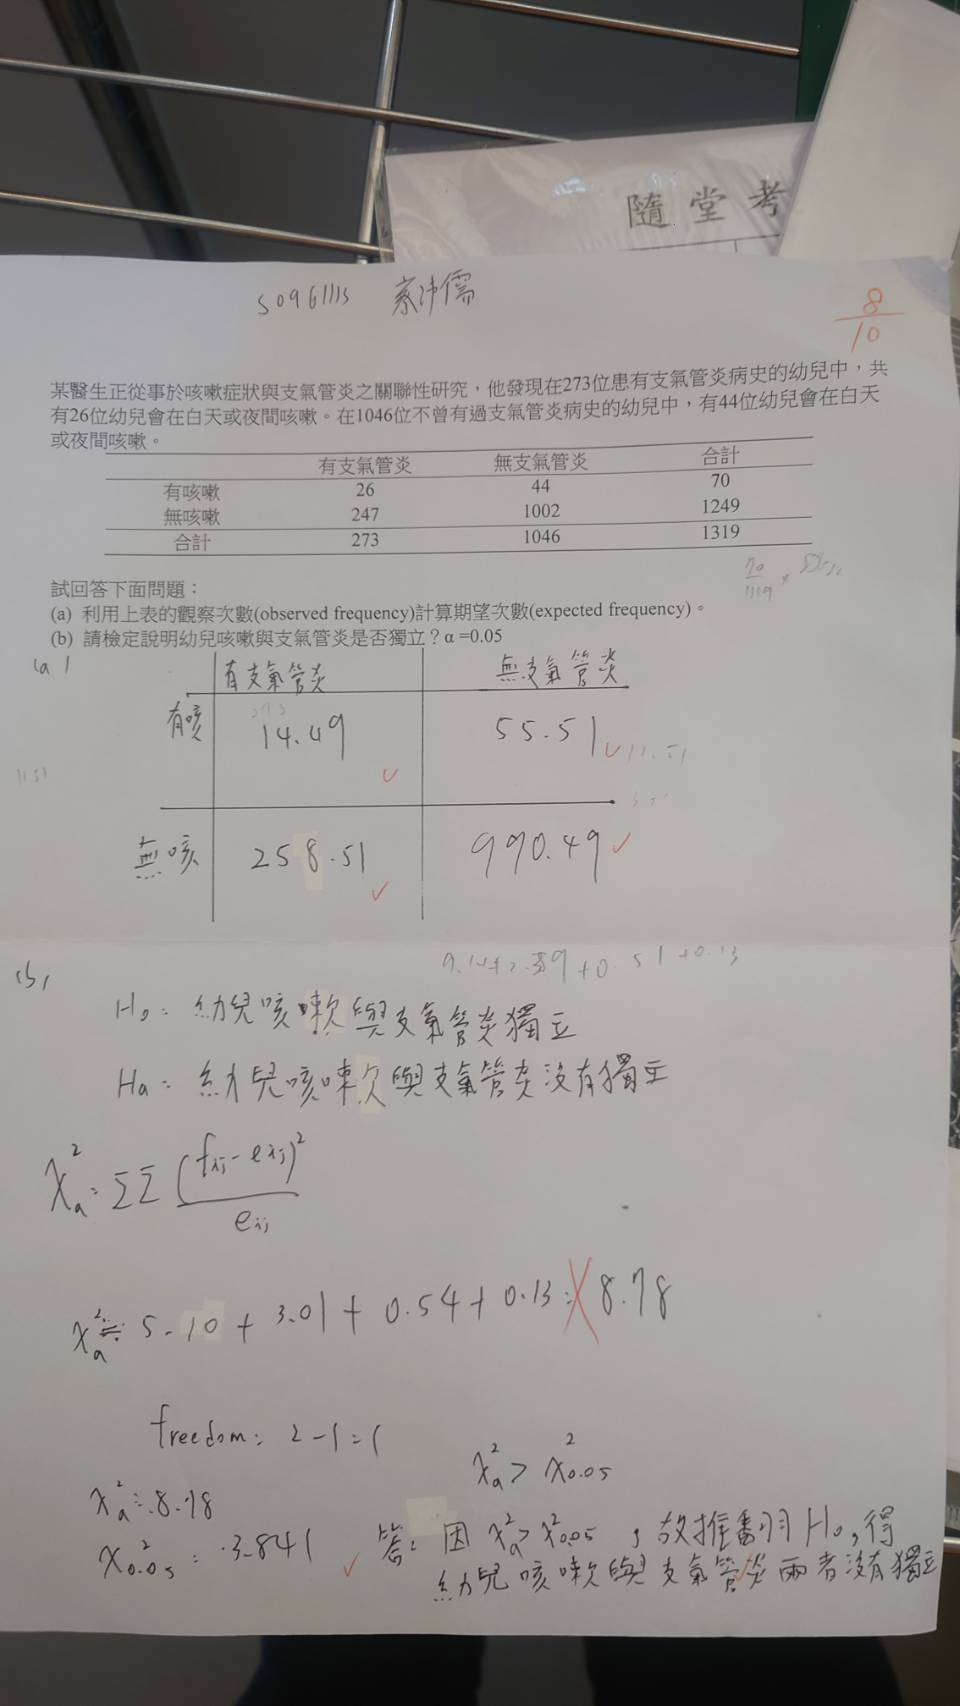 隨堂考
S0961115
8
10
某醫生正從事於咳嗽症狀與支氣管炎之關聯性研究，他發現在273位患有支氣管炎病史的幼兒中，共
有26位幼兒會在白天或夜間咳嗽。在1046位不曾有過支氣管炎病史的幼兒中，有44位幼兒會在白天
或夜間咳嗽。
有支氣管炎 無支氣管炎 合計
有咳嗽 26 44 70
無咳嗽 247 1002 1249
合計 273 1046 1319
試回答下面問題：
(a) 利用上表的觀察次數(observed frequency)計算期望次數(expected frequency)。
(b) 請檢定說明幼兒咳嗽與支氣管炎是否獨立？α=0.05
(a)
有支氣管炎 無支氣管炎
有咳 14.49 55.51
無咳 258.51 990.49
(b)
H0: 幼兒咳嗽與支氣管炎獨立
Ha: 幼兒咳嗽與支氣管炎沒有獨立
χ²a = ΣΣ (fij - eij)² / eij
χ²a ≒ 5.10 + 3.01 + 0.54 + 0.13 = 8.78
freedom: 2-1=1
χ²a > χ²0.05
χ²a = 8.78
χ²0.05 = 3.841
答: 因 χ²a > χ²0.05 , 故推翻 H0, 得
幼兒咳嗽與支氣管炎兩者沒有獨立